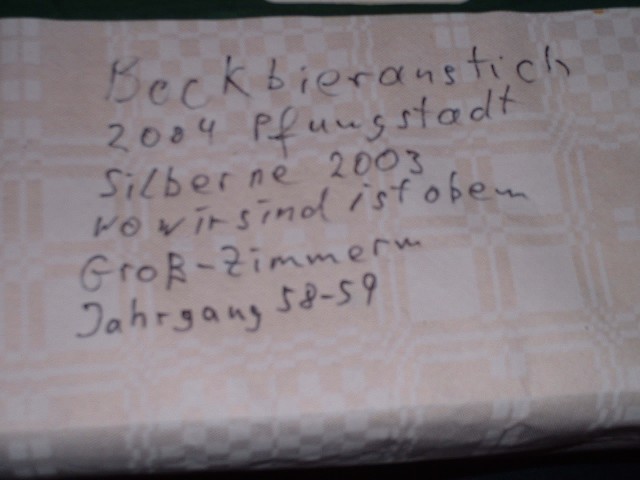 Bockbieranstich
2004 Pfungstadt
Silberne 2003
wo wir sind ist oben
Groß-Zimmern
Jahrgang 58-59